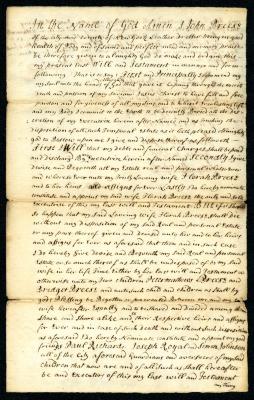 In the Name of God Amen I John Breese
of the City and County of New York Leather dresser being in good
Health of Body and of sound and perfect mind and memory praise
be therefore given to Almighty God do make and ordain this
my present Last Will and Testament in manner and form
following That is to say First and Principally I commend my
soul into the hands of God
and
pardon and forgiveness of all my Sins and to Inherit everlasting life
and my Body I commit to the Earth to be decently Buried at the dis-
cretion of my Executrix herein after Named and as touching the
disposition of all such Temporal Estate as it hath pleased Almighty
God to Bestow upon me I give and dispose thereof as followeth
First I Will that my debts and funeral Charges shall be paid
and discharged By Executrix herein after Named Secondly I give
devise and Bequeath all my Estate real and personal whatsoever
and wheresoever unto my loving Wife Dorah Breese
and to her heirs and assigns for ever Lastly I do hereby nominate
constitute and appoint my said Wife Dorah Breese the only and sole
executrix of this my last will and testament But if it should
so happen that my Said Loving Wife Dorah Breese shall die
without any disposition of my Said Real and personal Estate
or any part thereof given and devised unto her and to her heirs
and assigns for ever as aforesaid that then and in such case
I do hereby Give Devise and Bequeath my Said Real and personal
Estate or so much thereof as shall be undisposed of by my Said
wife in her life Time Either by her last will and testament or
otherwise unto my Two children
Bridget Breese and unto such child and children as shall by
gods Blessing be Begotten or procreated Between me and my Said
wife hereafter Equally to be divided among them
Share and Share alike and to their Respective heirs and assigns
for Ever and in Case of Such death and without Such disposition
as aforesaid I do hereby Nominate constitute and appoint my good
friends Paul Richards Joseph Royal and Simon Johnson
all of the City aforesaid Guardians and overseers of my said
Children that now are and of all Such as shall hereafter
be and Executors of this my last will and Testament